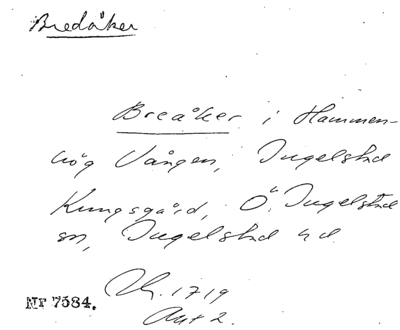 Bredåker
Breåker i Hammen-
hög Vången, Ingelstad
Kungsgård, Ö. Ingelstad
sn, Ingelstad hd.
1719
Akt 2.
NF 7584.